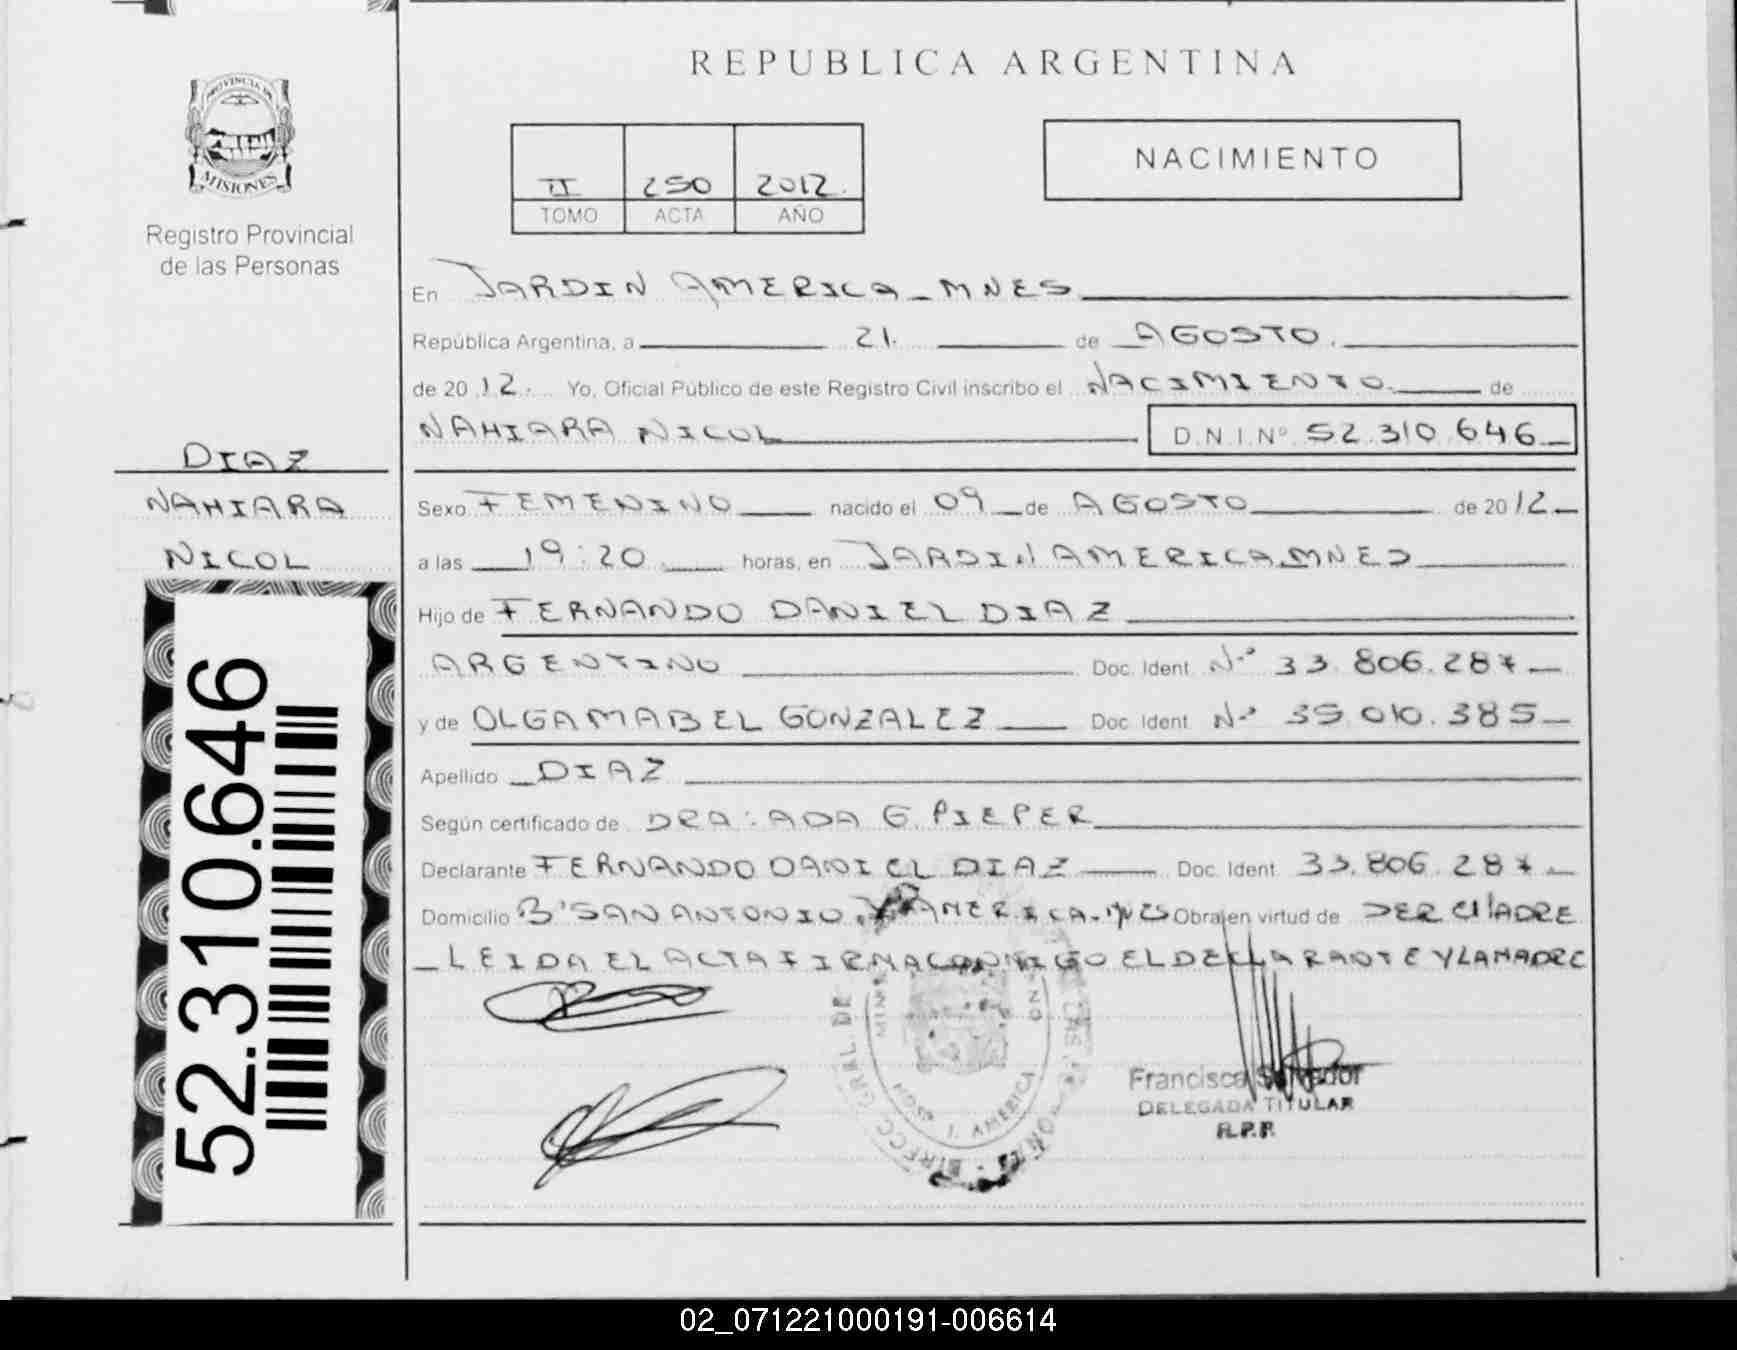 REPUBLICA ARGENTINA
PROVINCIA DE
MISIONES
Registro Provincial
de las Personas
NACIMIENTO
II 250 2012
TOMO ACTA AÑO
En JARDIN AMERICA - MNES
República Argentina, a 21. de AGOSTO.
de 2012. Yo, Oficial Público de este Registro Civil inscribo el NACIMIENTO de
NAHIARA NICOL D.N.I.Nº 52.310.646
DIAZ
NAHIARA
NICOL
52.310.646
Sexo FEMENINO nacido el 09 de AGOSTO de 2012
a las 19:20 horas, en JARDIN AMERICA MNES
Hijo de FERNANDO DANIEL DIAZ
ARGENTINO Doc. Ident. Nº 33.806.287
y de OLGA MABEL GONZALEZ Doc. Ident. Nº 35.010.385
Apellido DIAZ
Según certificado de DRA: ADA G. PIEPER
Declarante FERNANDO DANIEL DIAZ Doc. Ident. 33.806.287
Domicilio Bº SAN ANTONIO. AMERICA. Obra en virtud de SER MADRE
LEIDA EL ACTA FIRMA CONMIGO EL DECLARANTE Y LA MADRE
Francisca Salvador
DELEGADA TITULAR
R.P.P.
J. AMERICA
02_071221000191-006614